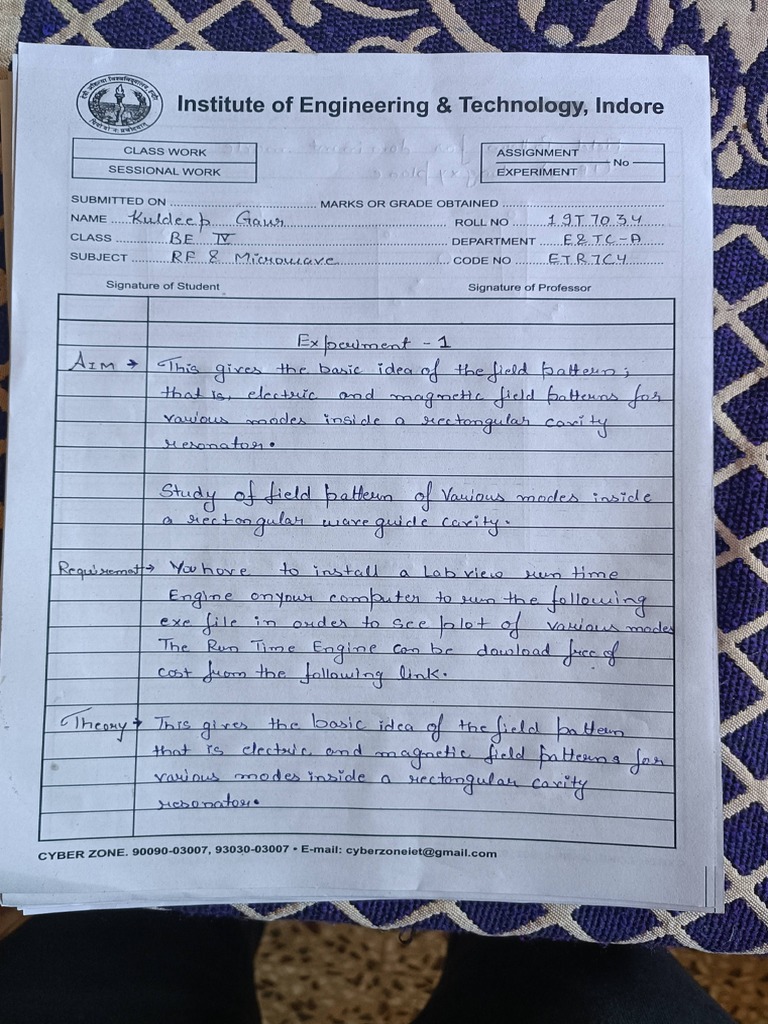 Institute of Engineering & Technology, Indore
CLASS WORK
SESSIONAL WORK
ASSIGNMENT
EXPERIMENT
No
SUBMITTED ON
MARKS OR GRADE OBTAINED
NAME Kuldeep Gaur
ROLL NO 19T7034
CLASS BE IV
DEPARTMENT E&TC-A
SUBJECT RF & Microwave
CODE NO ETR7C4
Signature of Student
Signature of Professor
Experiment - 1
AIM → This gives the basic idea of the field pattern;
that is, electric and magnetic field patterns for
various modes inside a rectangular cavity
resonator.
Study of field pattern of various modes inside
a rectangular wave guide cavity.
Requiremat → You have to install a Lab view run time
Engine on your computer to run the following
exe file in order to see plot of various modes
The Run Time Engine can be dowload free of
cost from the following link.
Theory → This gives the basic idea of the field pattern
that is electric and magnetic field patterns for
various modes inside a rectangular cavity
resonator.
CYBER ZONE. 90090-03007, 93030-03007 • E-mail: cyberzoneiet@gmail.com